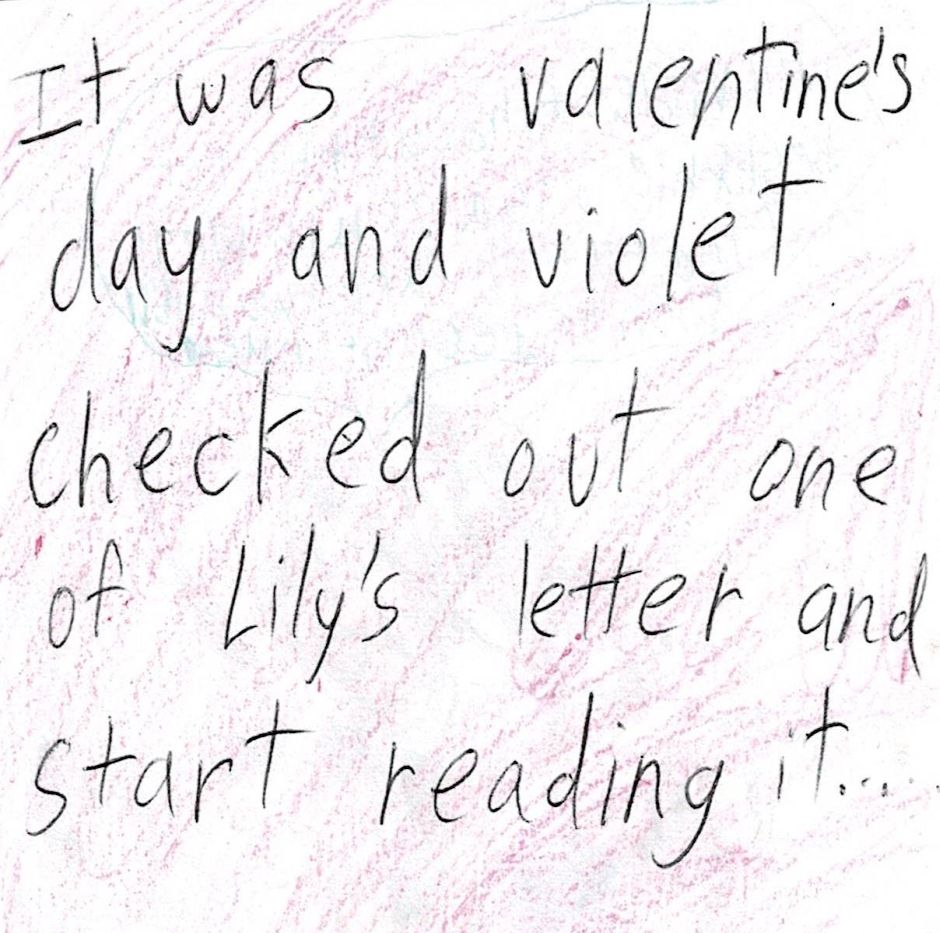 It was valentine's
day and violet
checked out one
of Lily's letter and
start reading it....